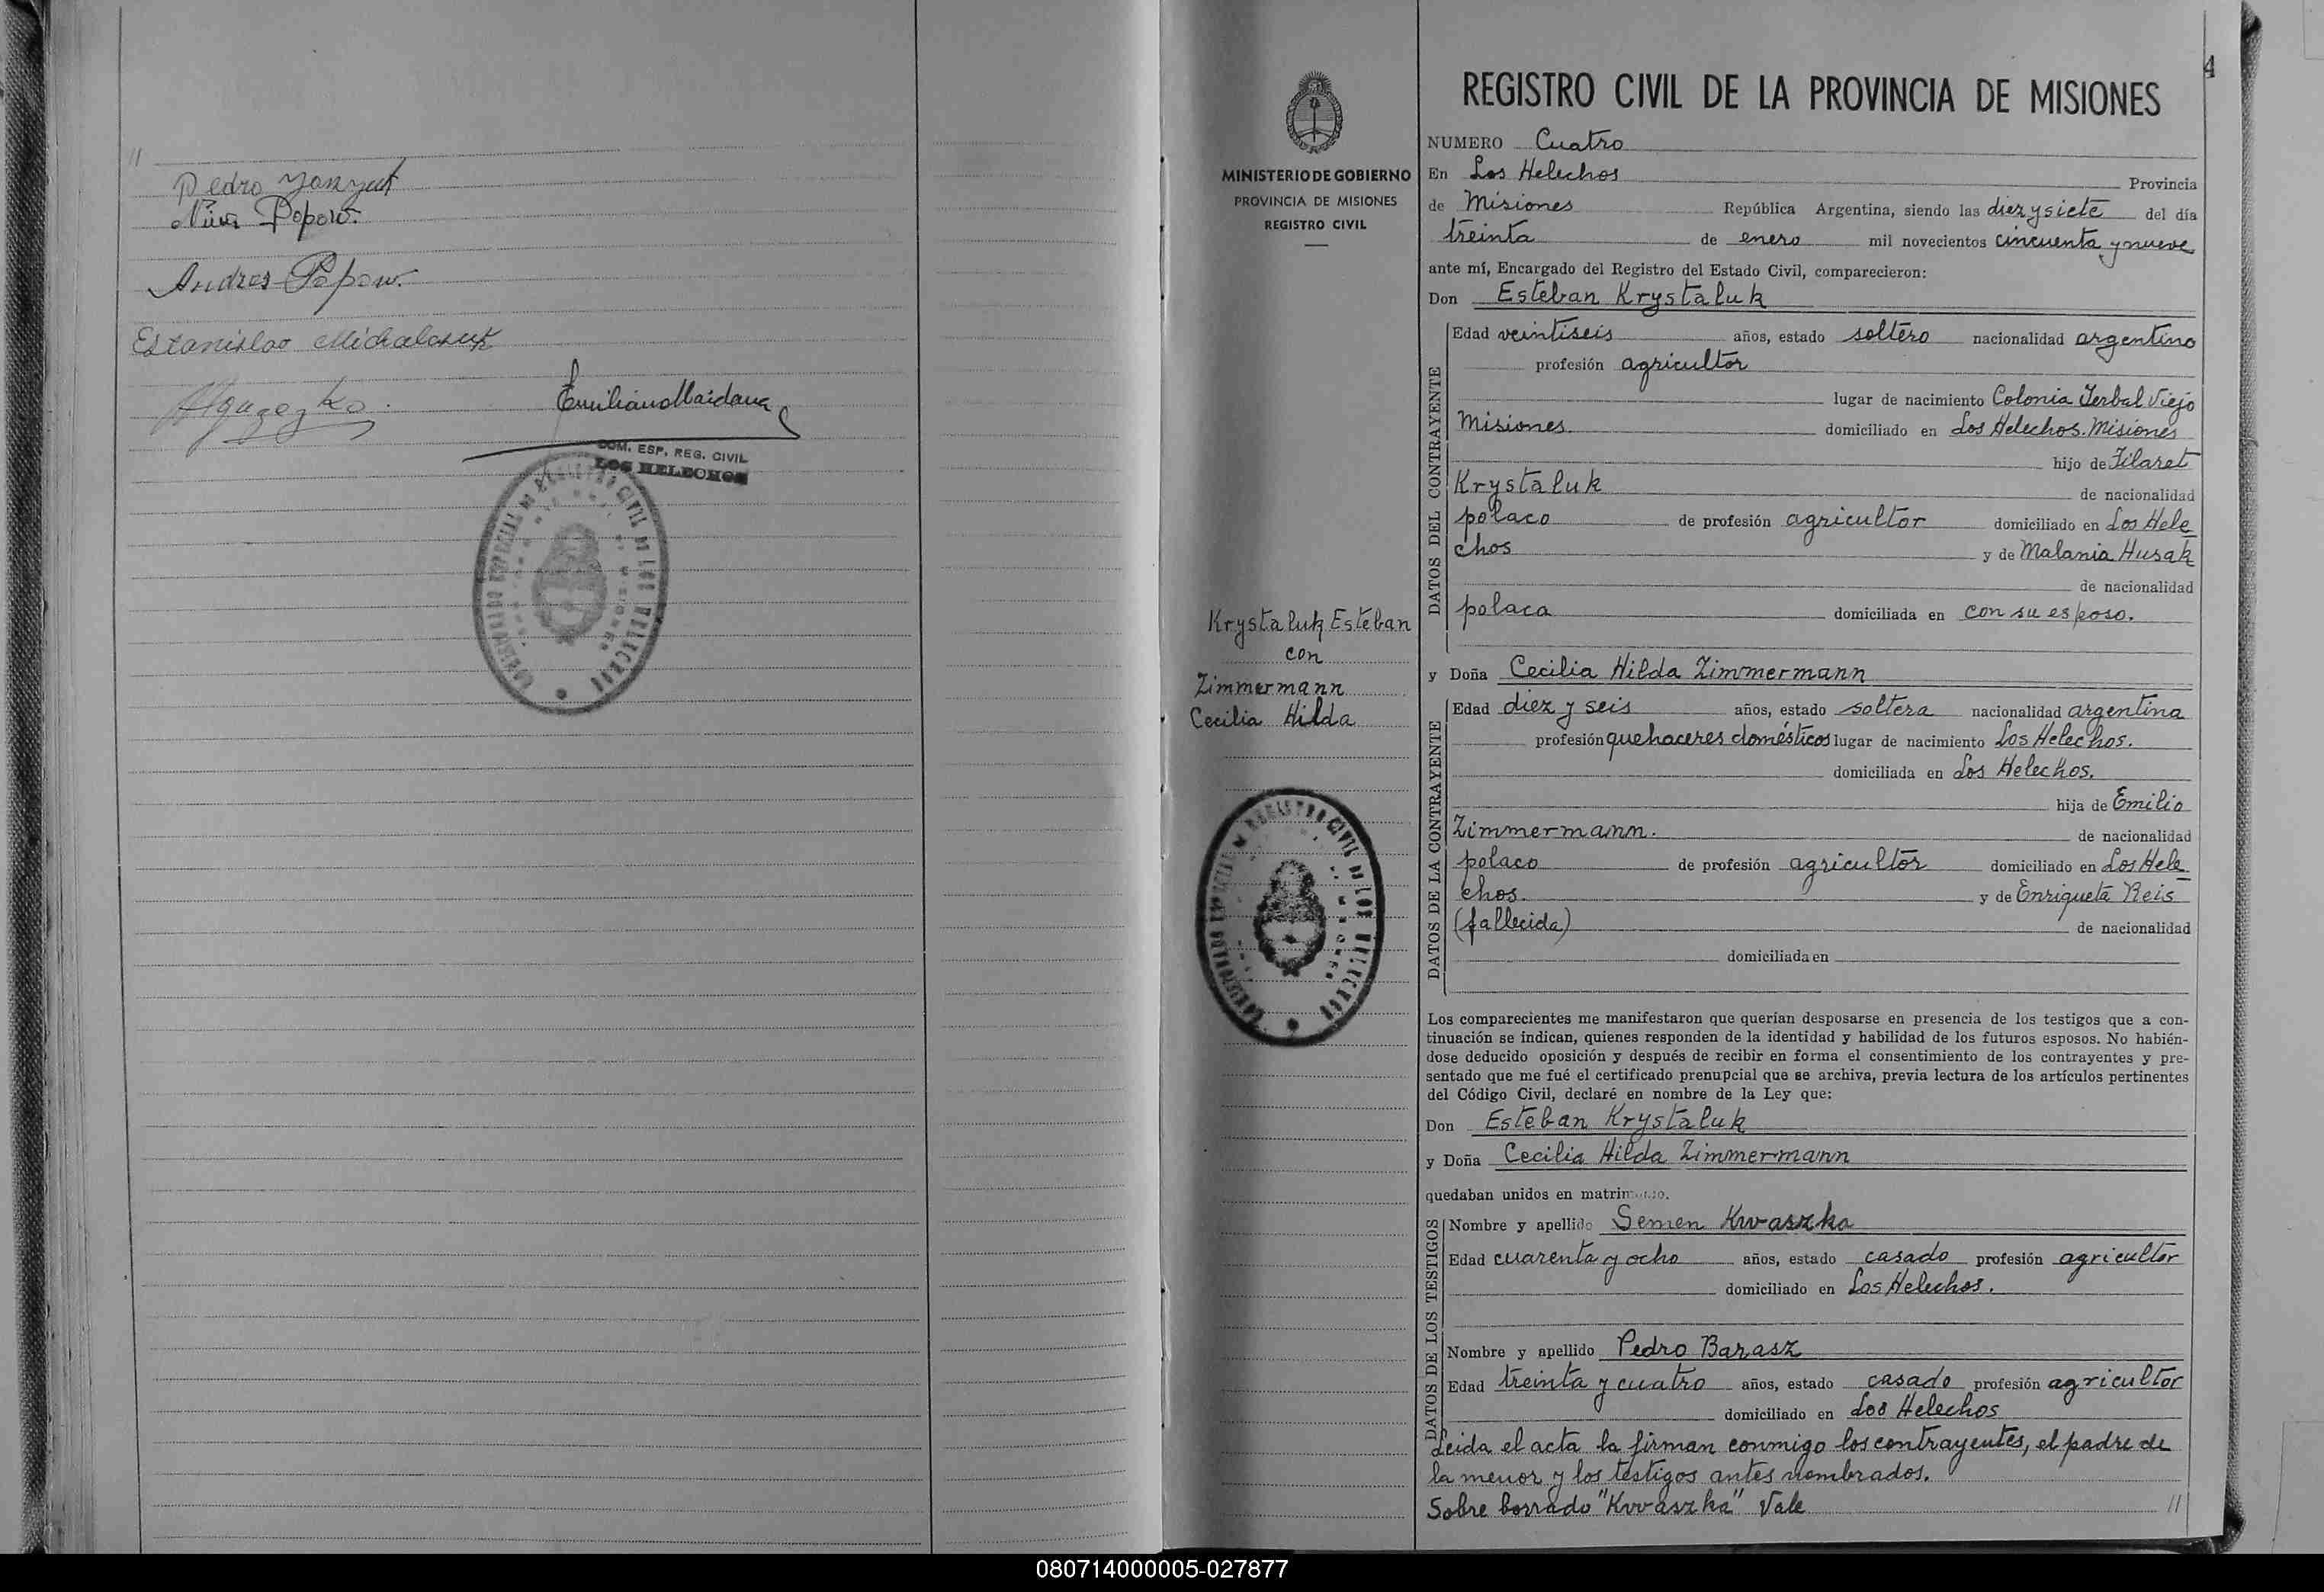 //
Pedro Yanzuk
Nina Popow.
Andres Popow.
Estanislao Michalczuk
Emiliano Maidana
COM. ESP. REG. CIVIL
LOS HELECHOS
4
MINISTERIO DE GOBIERNO
PROVINCIA DE MISIONES
REGISTRO CIVIL
Krystaluk Esteban
con
Zimmermann
Cecilia Hilda
REGISTRO CIVIL DE LA PROVINCIA DE MISIONES
NUMERO Cuatro
En Los Helechos Provincia
de Misiones República Argentina, siendo las diez y siete del día
treinta de enero mil novecientos cincuenta y nueve
ante mí, Encargado del Registro del Estado Civil, comparecieron:
Don Esteban Krystaluk
DATOS DEL CONTRAYENTE
Edad veintiseis años, estado soltero nacionalidad argentino
profesión agricultor
lugar de nacimiento Colonia Yerbal Viejo
Misiones. domiciliado en Los Helechos. Misiones
hijo de Filaret
Krystaluk de nacionalidad
polaco de profesión agricultor domiciliado en Los Hele
chos y de Malania Husak
de nacionalidad
polaca domiciliada en con su esposo.
y Doña Cecilia Hilda Zimmermann
DATOS DE LA CONTRAYENTE
Edad diez y seis años, estado soltera nacionalidad argentina
profesión quehaceres domésticos lugar de nacimiento Los Helechos.
domiciliada en Los Helechos.
hija de Emilio
Zimmermann. de nacionalidad
polaco de profesión agricultor domiciliado en Los Hele
chos. y de Enriqueta Reis
(fallecida) de nacionalidad
domiciliada en
Los comparecientes me manifestaron que querían desposarse en presencia de los testigos que a con-
tinuación se indican, quienes responden de la identidad y habilidad de los futuros esposos. No habién-
dose deducido oposición y después de recibir en forma el consentimiento de los contrayentes y pre-
sentado que me fué el certificado prenupcial que se archiva, previa lectura de los artículos pertinentes
del Código Civil, declaré en nombre de la Ley que:
Don Esteban Krystaluk
y Doña Cecilia Hilda Zimmermann
quedaban unidos en matrimonio.
DATOS DE LOS TESTIGOS
Nombre y apellido Semen Kwaszka
Edad cuarenta y ocho años, estado casado profesión agricultor
domiciliado en Los Helechos.
Nombre y apellido Pedro Barasz
Edad treinta y cuatro años, estado casado profesión agricultor
domiciliado en Los Helechos
Leida el acta la firman conmigo los contrayentes, el padre de
la menor y los testigos antes nombrados.
Sobre borrado "Kwaszka" Vale //
080714000005-027877